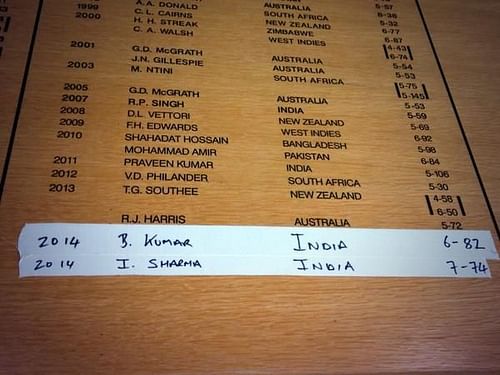 AUSTRALIA 5-57
8-38
A.A. DONALD SOUTH AFRICA 5-32
1999 C.L. CAIRNS NEW ZEALAND 6-77
2000 H.H. STREAK ZIMBABWE 6-87
C.A. WALSH WEST INDIES 4-43
6-74
2001 G.D. McGRATH AUSTRALIA 5-54
J.N. GILLESPIE AUSTRALIA 5-53
2003 M. NTINI SOUTH AFRICA 5-75
5-145
2005 G.D. McGRATH AUSTRALIA 5-53
2007 R.P. SINGH INDIA 5-59
2008 D.L. VETTORI NEW ZEALAND 5-69
2009 F.H. EDWARDS WEST INDIES 6-92
2010 SHAHADAT HOSSAIN BANGLADESH 5-98
MOHAMMAD AMIR PAKISTAN 6-84
2011 PRAVEEN KUMAR INDIA 5-106
2012 V.D. PHILANDER SOUTH AFRICA 5-30
2013 T.G. SOUTHEE NEW ZEALAND 4-58
6-50
R.J. HARRIS AUSTRALIA 5-72
2014 B. KUMAR INDIA 6-82
2014 I. SHARMA INDIA 7-74